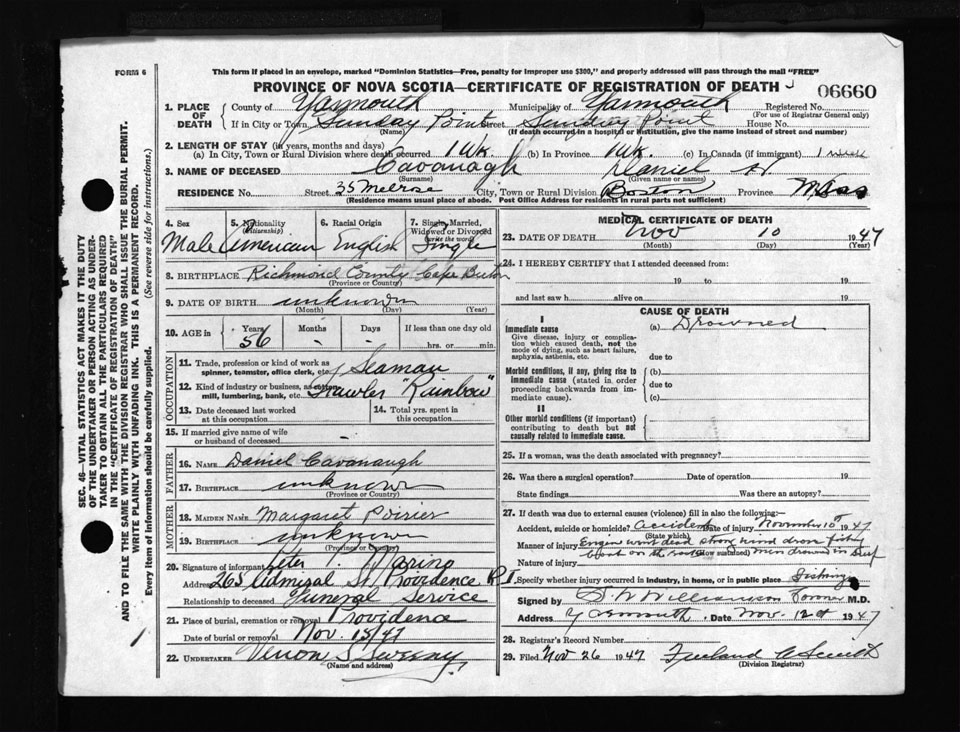 FORM 6
This form if placed in an envelope, marked "Dominion Statistics—Free, penalty for improper use $300," and properly addressed will pass through the mail "FREE"
PROVINCE OF NOVA SCOTIA—CERTIFICATE OF REGISTRATION OF DEATH
06660
1. PLACE OF DEATH
County of Yarmouth Municipality of Yarmouth Registered No.
(For use of Registrar General only)
If in City or Town Sunday Point Street Sunday Point House No.
(Name) (If death occurred in a hospital or institution, give the name instead of street and number)
2. LENGTH OF STAY (in years, months and days)
(a) In City, Town or Rural Division where death occurred 1 Wk. (b) In Province 1 Wk. (c) In Canada (if immigrant) 1 week
3. NAME OF DECEASED Cavanagh Daniel H.
(Surname) (Given name or names)
RESIDENCE No. Street 35 Melrose City, Town or Rural Division Boston Province Mass
(Residence means usual place of abode. Post Office Address for residents in rural parts not sufficient)
4. Sex Male
5. Nationality (Citizenship) American
6. Racial Origin English
7. Single, Married, Widowed or Divorced (write the word) Single
8. BIRTHPLACE Richmond County Cape Breton
(Province or County)
9. DATE OF BIRTH unknown
(Month) (Day) (Year)
10. AGE in Years Months Days If less than one day old
56 - - hrs. or min.
OCCUPATION
11. Trade, profession or kind of work as spinner, teamster, office clerk, etc. Seaman
12. Kind of industry or business, as cotton mill, lumbering, bank, etc. Trawler "Rainbow"
13. Date deceased last worked at this occupation
14. Total yrs. spent in this occupation
15. If married give name of wife or husband of deceased -
FATHER
16. NAME Daniel Cavanaugh
17. BIRTHPLACE unknown
(Province or Country)
MOTHER
18. MAIDEN NAME Margaret Poirier
19. BIRTHPLACE unknown
(Province or Country)
20. Signature of informant Peter T. Marino
Address 265 Admiral St. Providence R.I.
Relationship to deceased Funeral Service
21. Place of burial, cremation or removal Providence
Date of burial or removal Nov. 15/47
22. UNDERTAKER Vernon S Sweeny
(Name and address)
MEDICAL CERTIFICATE OF DEATH
23. DATE OF DEATH Nov 10 1947
(Month) (Day) (Year)
24. I HEREBY CERTIFY that I attended deceased from:
19 to 19
and last saw h alive on 19
CAUSE OF DEATH
I
Immediate cause (a) Drowned
Give disease, injury or complication which caused death, not the mode of dying, such as heart failure, asphyxia, asthenia, etc.
due to
Morbid conditions, if any, giving rise to immediate cause (stated in order proceeding backwards from immediate cause).
(b)
due to
(c)
II
Other morbid conditions (if important) contributing to death but not causally related to immediate cause.
25. If a woman, was the death associated with pregnancy?
26. Was there a surgical operation? Date of operation 19
State findings Was there an autopsy?
27. If death was due to external causes (violence) fill in also the following:—
Accident, suicide or homicide? accident Date of injury November 10th 1947
(State which)
Manner of injury Engine went dead strong wind drove fishing
boat on the rocks (How sustained) men drowned in surf
Nature of injury
Specify whether injury occurred in industry, in home, or in public place Fishing
Signed by Williamson Coroner M.D.
Address Yarmouth Date Nov. 12th 1947
28. Registrar's Record Number
29. Filed Nov 26 1947
(Division Registrar)
SEC. 46—VITAL STATISTICS ACT MAKES IT THE DUTY
OF THE UNDERTAKER OR PERSON ACTING AS UNDER-
TAKER TO OBTAIN ALL THE PARTICULARS REQUIRED
IN THE "CERTIFICATE OF REGISTRATION OF DEATH"
AND TO FILE THE SAME WITH THE DIVISION REGISTRAR WHO SHALL ISSUE THE BURIAL PERMIT.
WRITE PLAINLY WITH UNFADING INK. THIS IS A PERMANENT RECORD.
Every item of information should be carefully supplied. (See reverse side for instructions.)